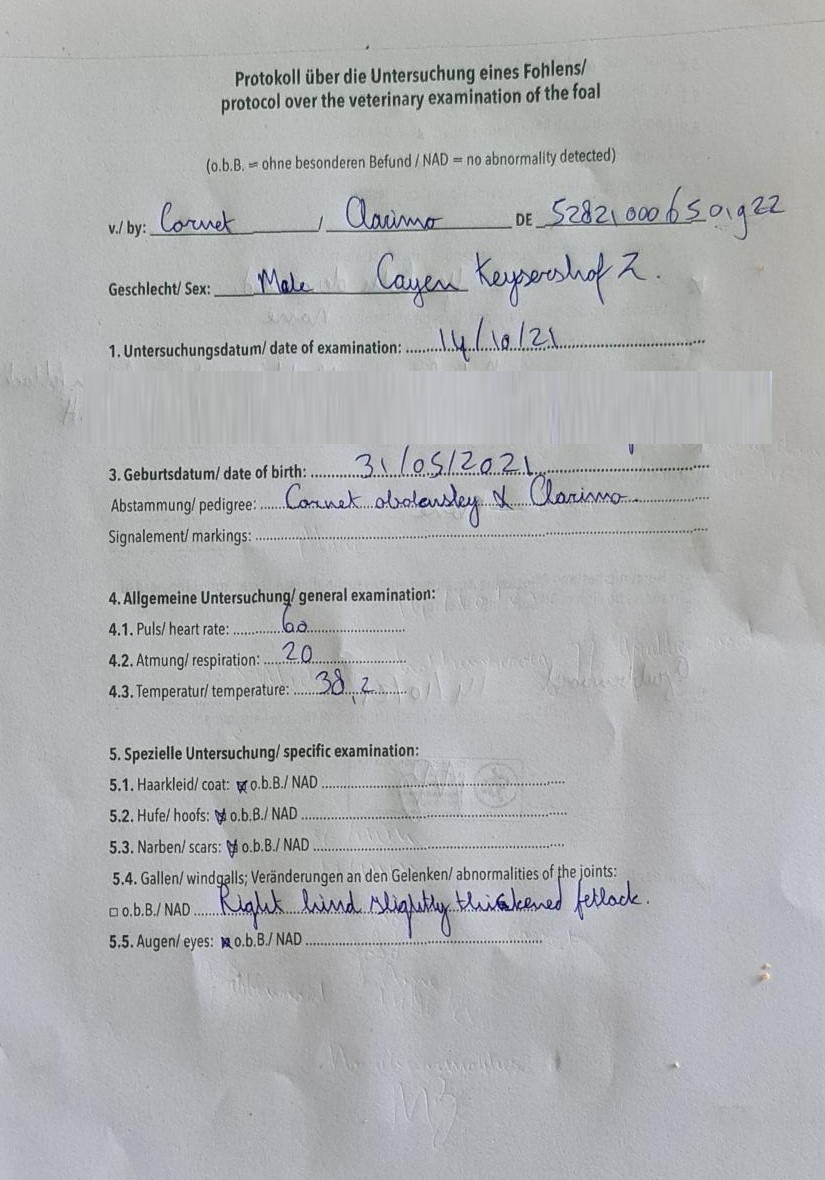 Protokoll über die Untersuchung eines Fohlens/
protocol over the veterinary examination of the foal
(o.b.B. = ohne besonderen Befund / NAD = no abnormality detected)
v./ by: Cornet / Clarimo DE 52821000650922
Geschlecht/ Sex: Male Cayen Keysershof Z.
1. Untersuchungsdatum/ date of examination: 14/10/21
3. Geburtsdatum/ date of birth: 31/05/2021
Abstammung/ pedigree: Cornet obolensky X Clarimo
Signalement/ markings:
4. Allgemeine Untersuchung/ general examination:
4.1. Puls/ heart rate: 60
4.2. Atmung/ respiration: 20
4.3. Temperatur/ temperature: 38,2
5. Spezielle Untersuchung/ specific examination:
5.1. Haarkleid/ coat: o.b.B./ NAD
5.2. Hufe/ hoofs: o.b.B./ NAD
5.3. Narben/ scars: o.b.B./ NAD
5.4. Gallen/ windgalls; Veränderungen an den Gelenken/ abnormalities of the joints:
o.b.B./ NAD Right hind slightly thickened fetlock.
5.5. Augen/ eyes: o.b.B./ NAD